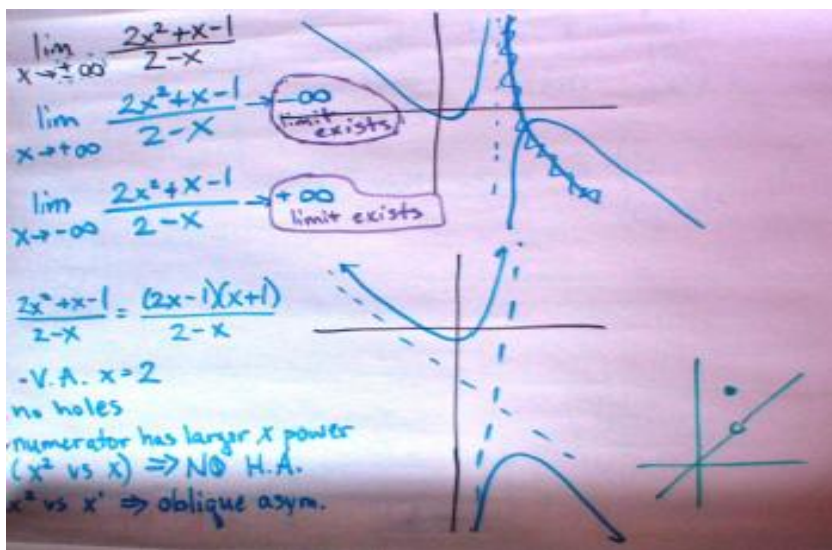 lim x→±∞ (2x²+x-1)/(2-x)
lim x→+∞ (2x²+x-1)/(2-x) → -∞
limit exists
lim x→-∞ (2x²+x-1)/(2-x) → +∞
limit exists
(2x²+x-1)/(2-x) = (2x-1)(x+1)/(2-x)
-V.A. x=2
no holes
numerator has larger x power
(x² vs x) ⇒ NO H.A.
x² vs x¹ ⇒ oblique asym.